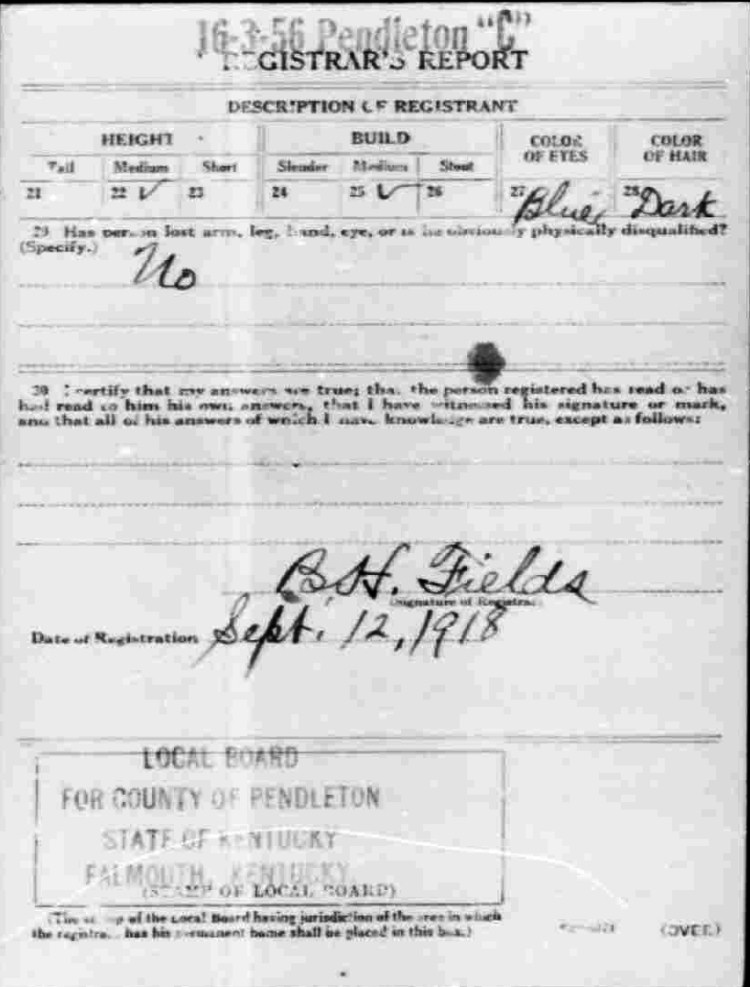 16-3-56 Pendleton "C"
REGISTRAR'S REPORT
DESCRIPTION OF REGISTRANT
HEIGHT BUILD COLOR OF EYES COLOR OF HAIR
Tall Medium Short Slender Medium Stout
21 22 ✓ 23 24 25 ✓ 26 27 Blue 28 Dark
29 Has person lost arm, leg, hand, eye, or is he obviously physically disqualified?
(Specify.)
No
30 I certify that my answers are true; that the person registered has read or has
had read to him his own answers, that I have witnessed his signature or mark,
and that all of his answers of which I have knowledge are true, except as follows:
B.H. Fields
(Signature of Registrar)
Date of Registration Sept. 12, 1918
LOCAL BOARD
FOR COUNTY OF PENDLETON
STATE OF KENTUCKY
FALMOUTH, KENTUCKY.
(STAMP OF LOCAL BOARD)
(The stamp of the Local Board having jurisdiction of the area in which
the registrant has his permanent home shall be placed in this box.)
(OVER)